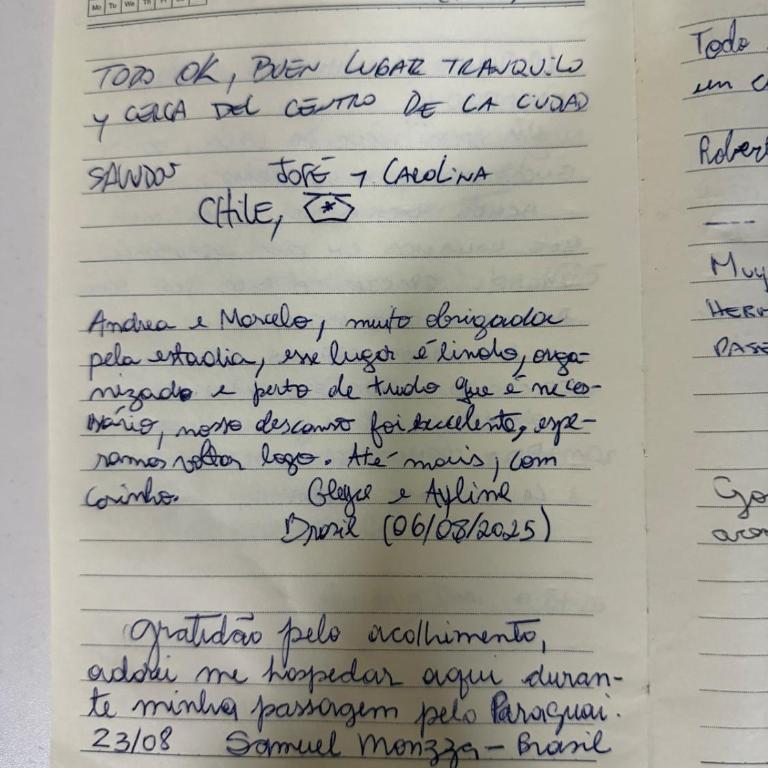 Mo Tu We Th Fr
TODO OK, BUEN LUGAR TRANQUILO
Y CERCA DEL CENTRO DE LA CIUDAD
SALUDOS JOSÉ Y CAROLINA
CHILE,
Andrea e Marcelo, muito obrigada
pela estadia, esse lugar é lindo, orga-
nizado e perto de tudo que é neces-
sário, nosso descanso foi excelente, espe-
ramos voltar logo. Até mais, com
carinho. Gleyce e Ayline
Brasil (06/08/2025)
Gratidão pelo acolhimento,
adorei me hospedar aqui duran-
te minha passagem pelo Paraguai.
23/08 Samuel Monzza - Brasil
Todo
un
Robert
Muy